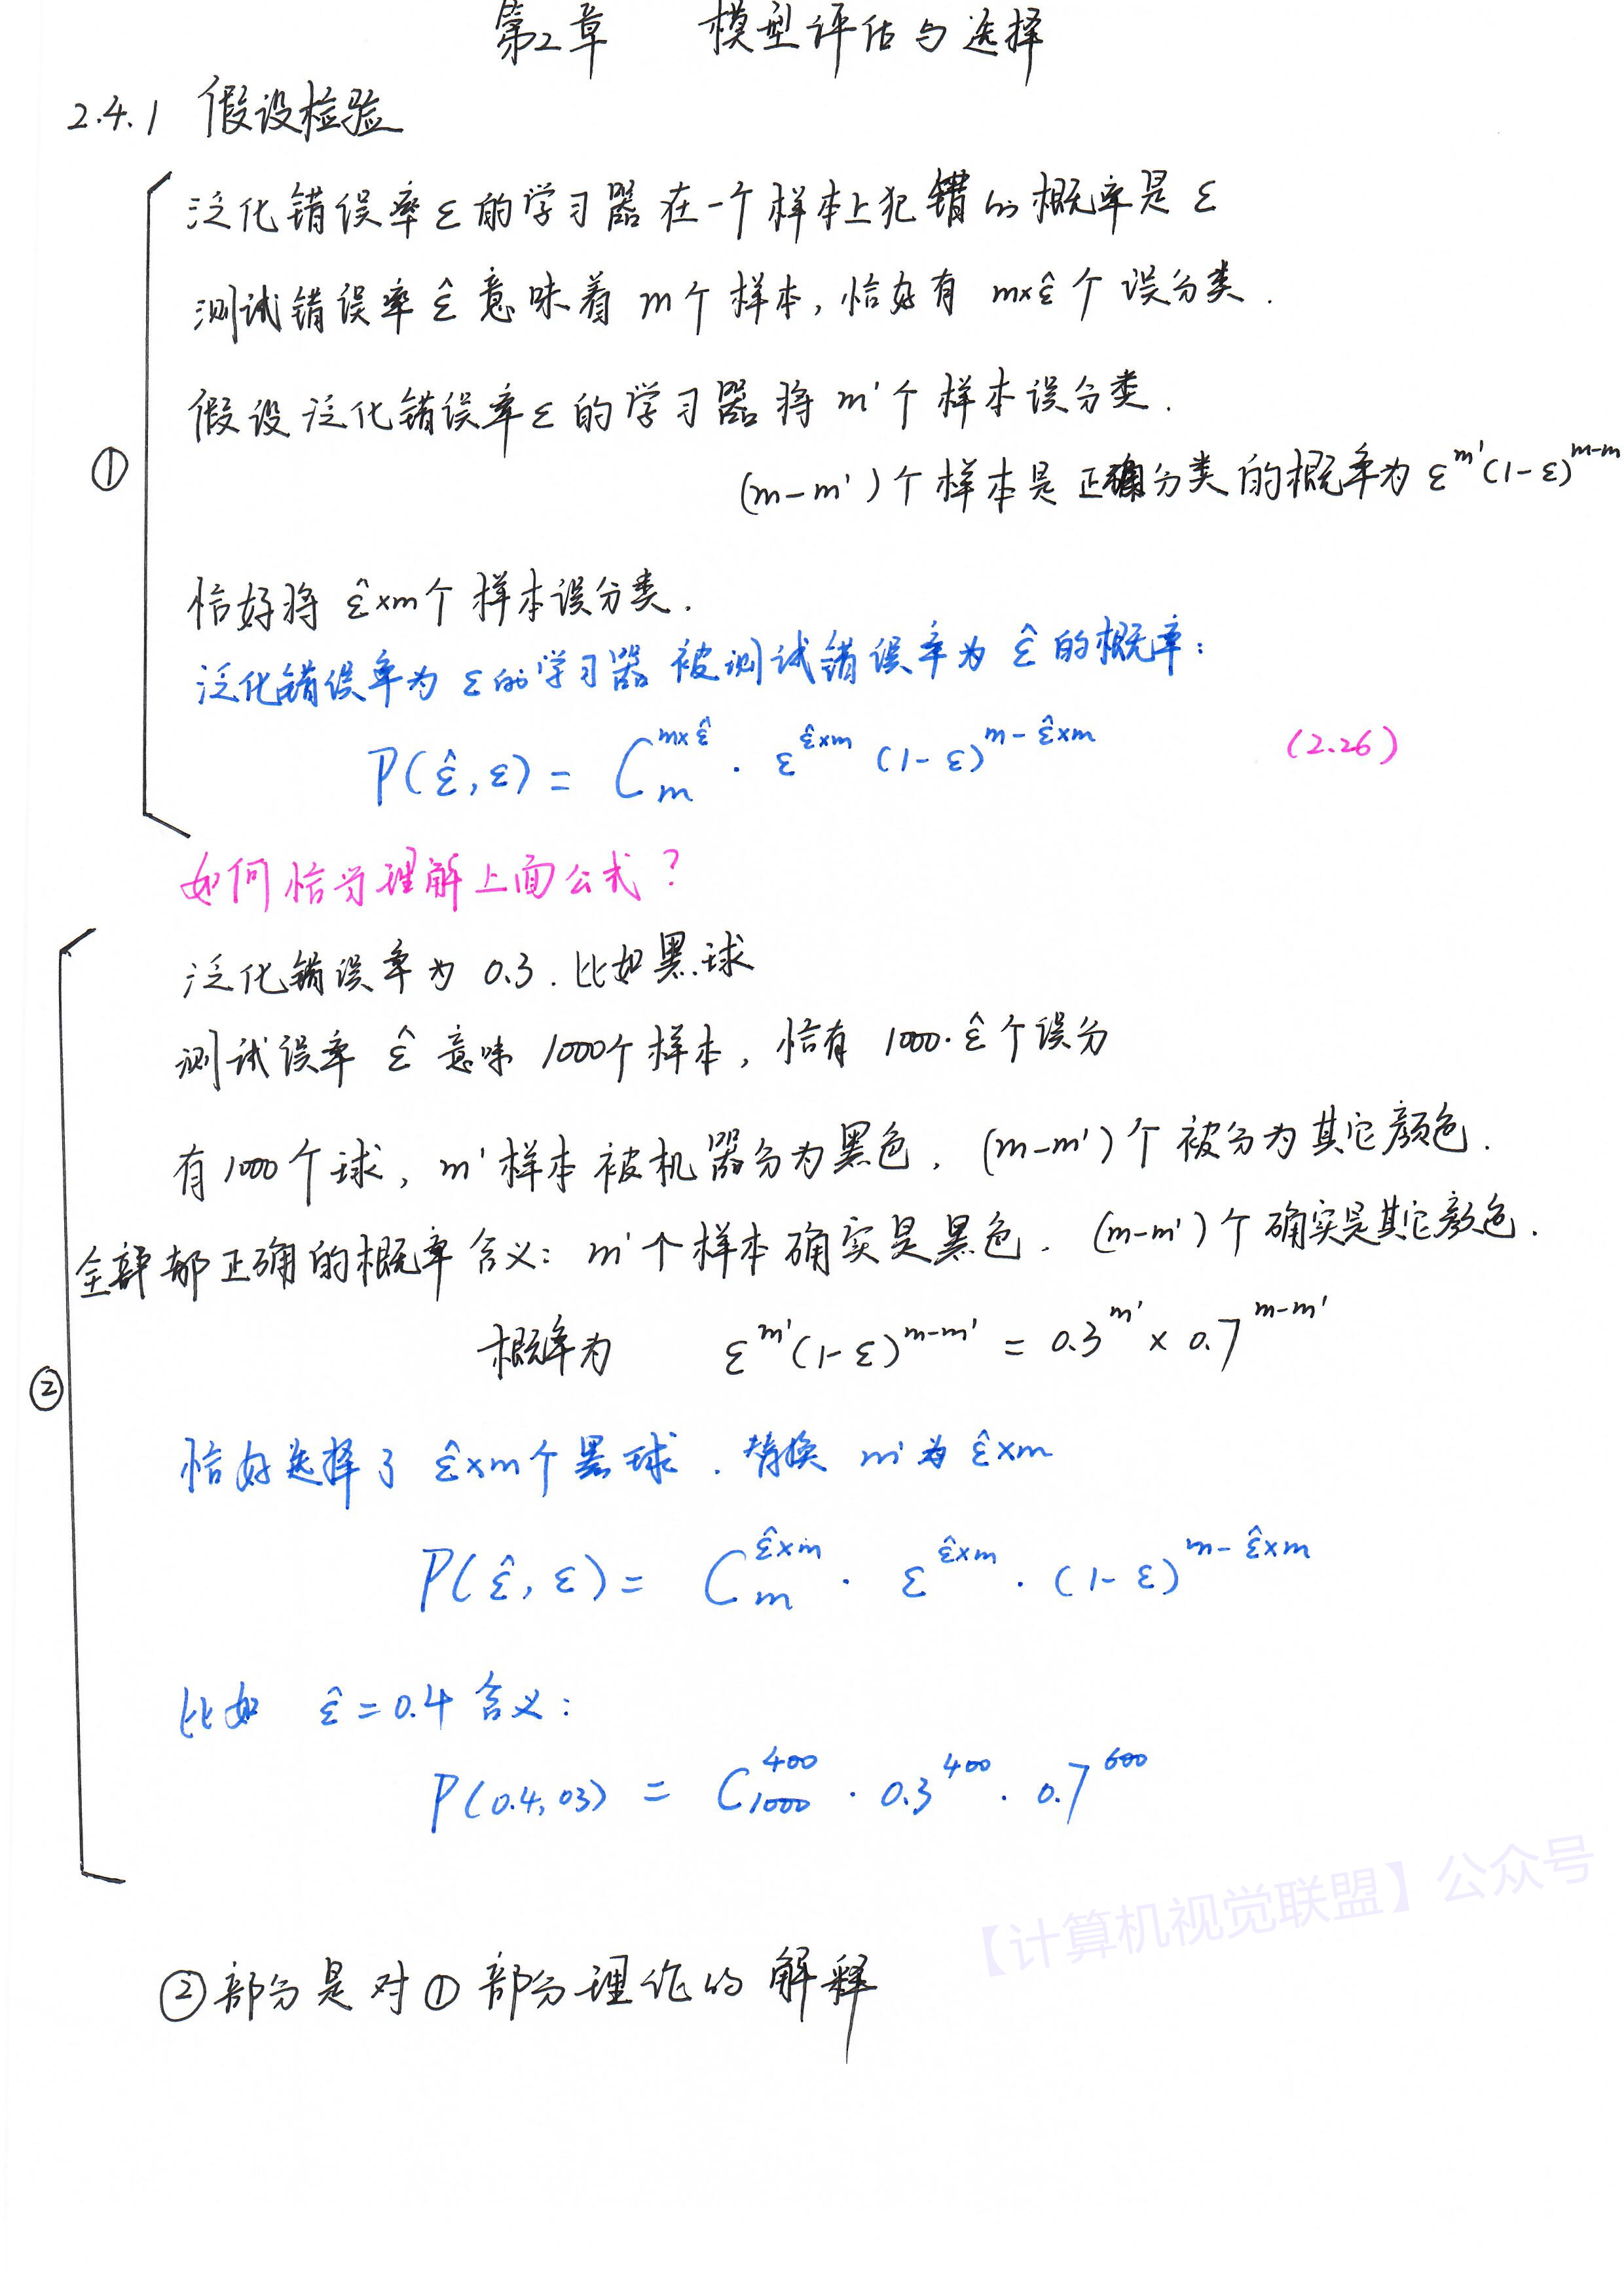 第2章 模型评估与选择
2.4.1 假设检验
泛化错误率ε的学习器在一个样本上犯错的概率是ε
测试错误率ε̂意味着m个样本,恰好有 m×ε̂个误分类.
假设泛化错误率ε的学习器将m'个样本误分类.
①
(m-m')个样本是正确分类的概率为 ε^m'(1-ε)^m-m
恰好将 ε̂×m个样本误分类.
泛化错误率为ε的学习器被测试错误率为ε̂的概率:
P(ε̂,ε) = C_m^m×ε̂ · ε^ε̂×m (1-ε)^m-ε̂×m (2.26)
如何恰当理解上面公式?
泛化错误率为0.3.比如黑球
测试误率 ε̂ 意味 1000个样本,恰有 1000·ε̂个误分
有1000个球,m'样本被机器分为黑色,(m-m')个被分为其它颜色.
全部都正确的概率含义:m'个样本确实是黑色.(m-m')个确实是其它颜色.
概率为 ε^m'(1-ε)^m-m' = 0.3^m' × 0.7^m-m'
②
恰好选择了 ε̂×m个黑球.替换 m'为 ε̂×m
P(ε̂,ε) = C_m^ε̂×m · ε^ε̂×m · (1-ε)^m-ε̂×m
比如 ε̂=0.4含义:
P(0.4,03) = C_1000^400 · 0.3^400 · 0.7^600
【计算机视觉联盟】公众号
②部分是对①部分理论的解释